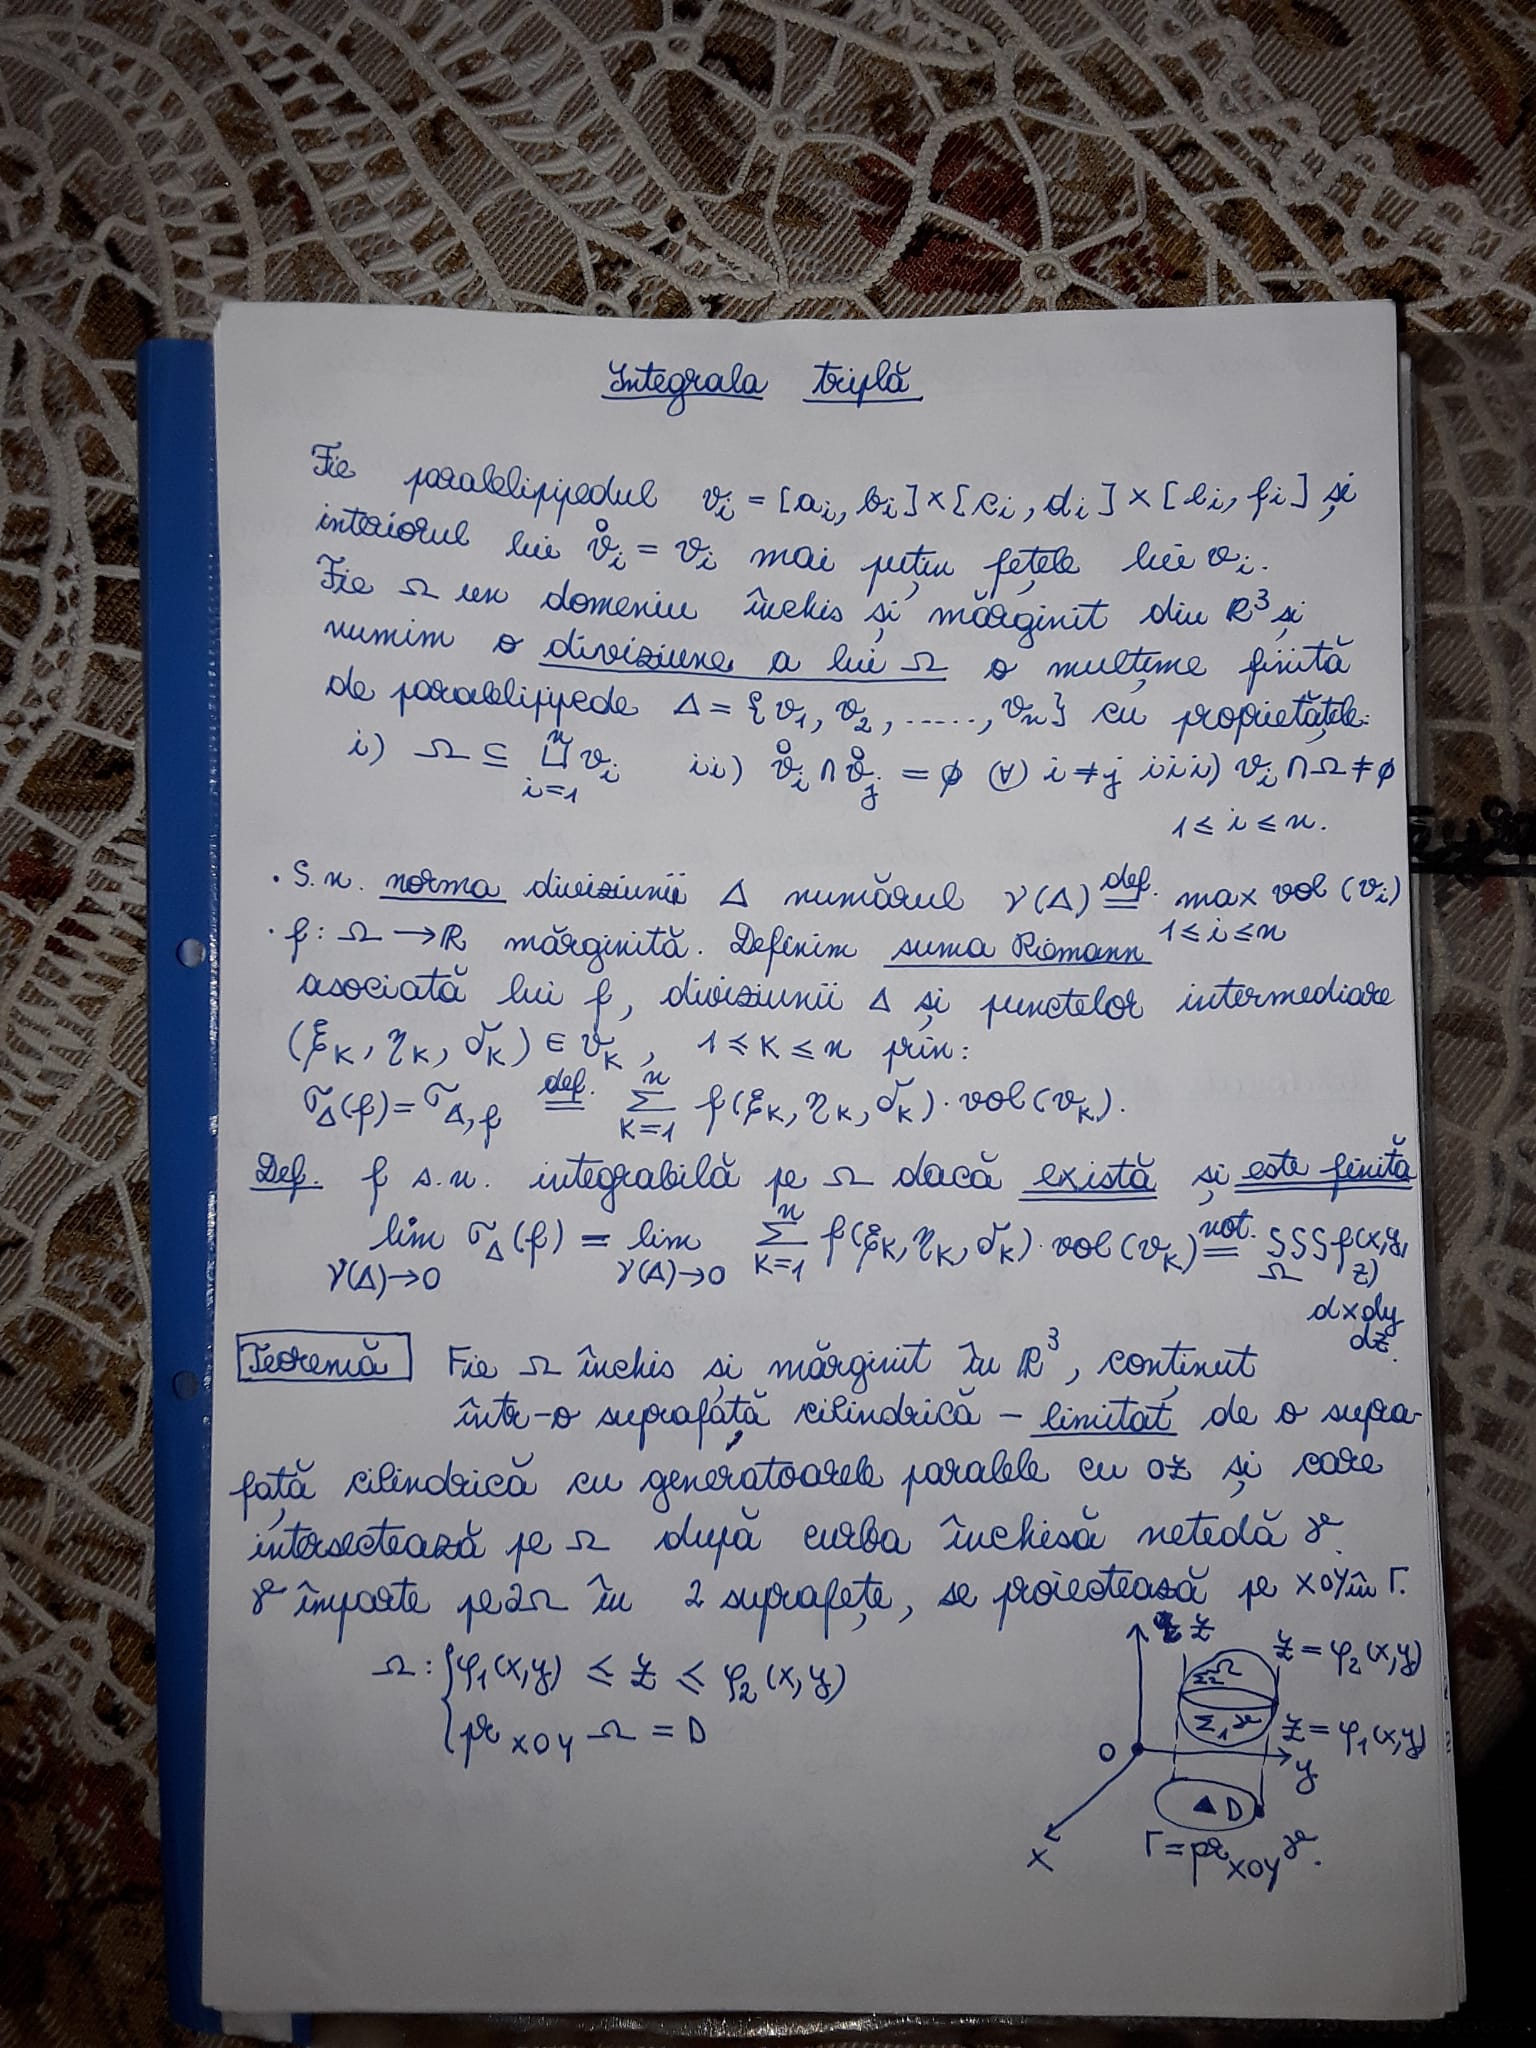 Integrala triplă
Fie paralelipipedul vi = [ai, bi] × [ci, di] × [ei, fi] și
interiorul lui v̊i = vi mai puțin fețele lui vi.
Fie Ω un domeniu închis și mărginit din R³ și
numim o diviziune a lui Ω o mulțime finită
de paralelipipede Δ = {v1, v2, ....., vn} cu proprietățile:
i) Ω ⊆ ⋃ⁿᵢ₌₁ vi ii) v̊i ∩ v̊j = ∅ (∀) i ≠ j iii) vi ∩ Ω ≠ ∅
1 ≤ i ≤ n.
· S.n. norma diviziunii Δ numărul γ(Δ) =def. max vol (vi)
1 ≤ i ≤ n
· f: Ω → R mărginită. Definim suma Riemann
asociată lui f, diviziunii Δ și punctelor intermediare
(ξK, ηK, σK) ∈ vK, 1 ≤ K ≤ n prin:
σΔ(f) = σΔ,f =def. Σⁿ K=1 f(ξK, ηK, σK) · vol(vK).
Def. f s.n. integrabilă pe Ω dacă există și este finită
lim γ(Δ)→0 σΔ(f) = lim γ(Δ)→0 Σⁿ K=1 f(ξK, ηK, σK) · vol(vK) =not. ∫∫∫Ω f(x,y,
z)
dxdy
dz.
Teoremă Fie Ω închis și mărginit în R³, conținut
într-o suprafață cilindrică – limitat de o supra-
față cilindrică cu generatoarele paralele cu oz și care
intersectează pe Ω după curba închisă netedă γ.
γ împarte pe ∂Ω în 2 suprafețe, se proiectează pe XOY în Γ.
Ω: { φ1(x,y) ≤ z ≤ φ2(x,y)
prXOY Ω = D
z
Ω
Σ2
z = φ2(x,y)
Σ1 γ
z = φ1(x,y)
O
y
D
x
Γ = prXOY γ.